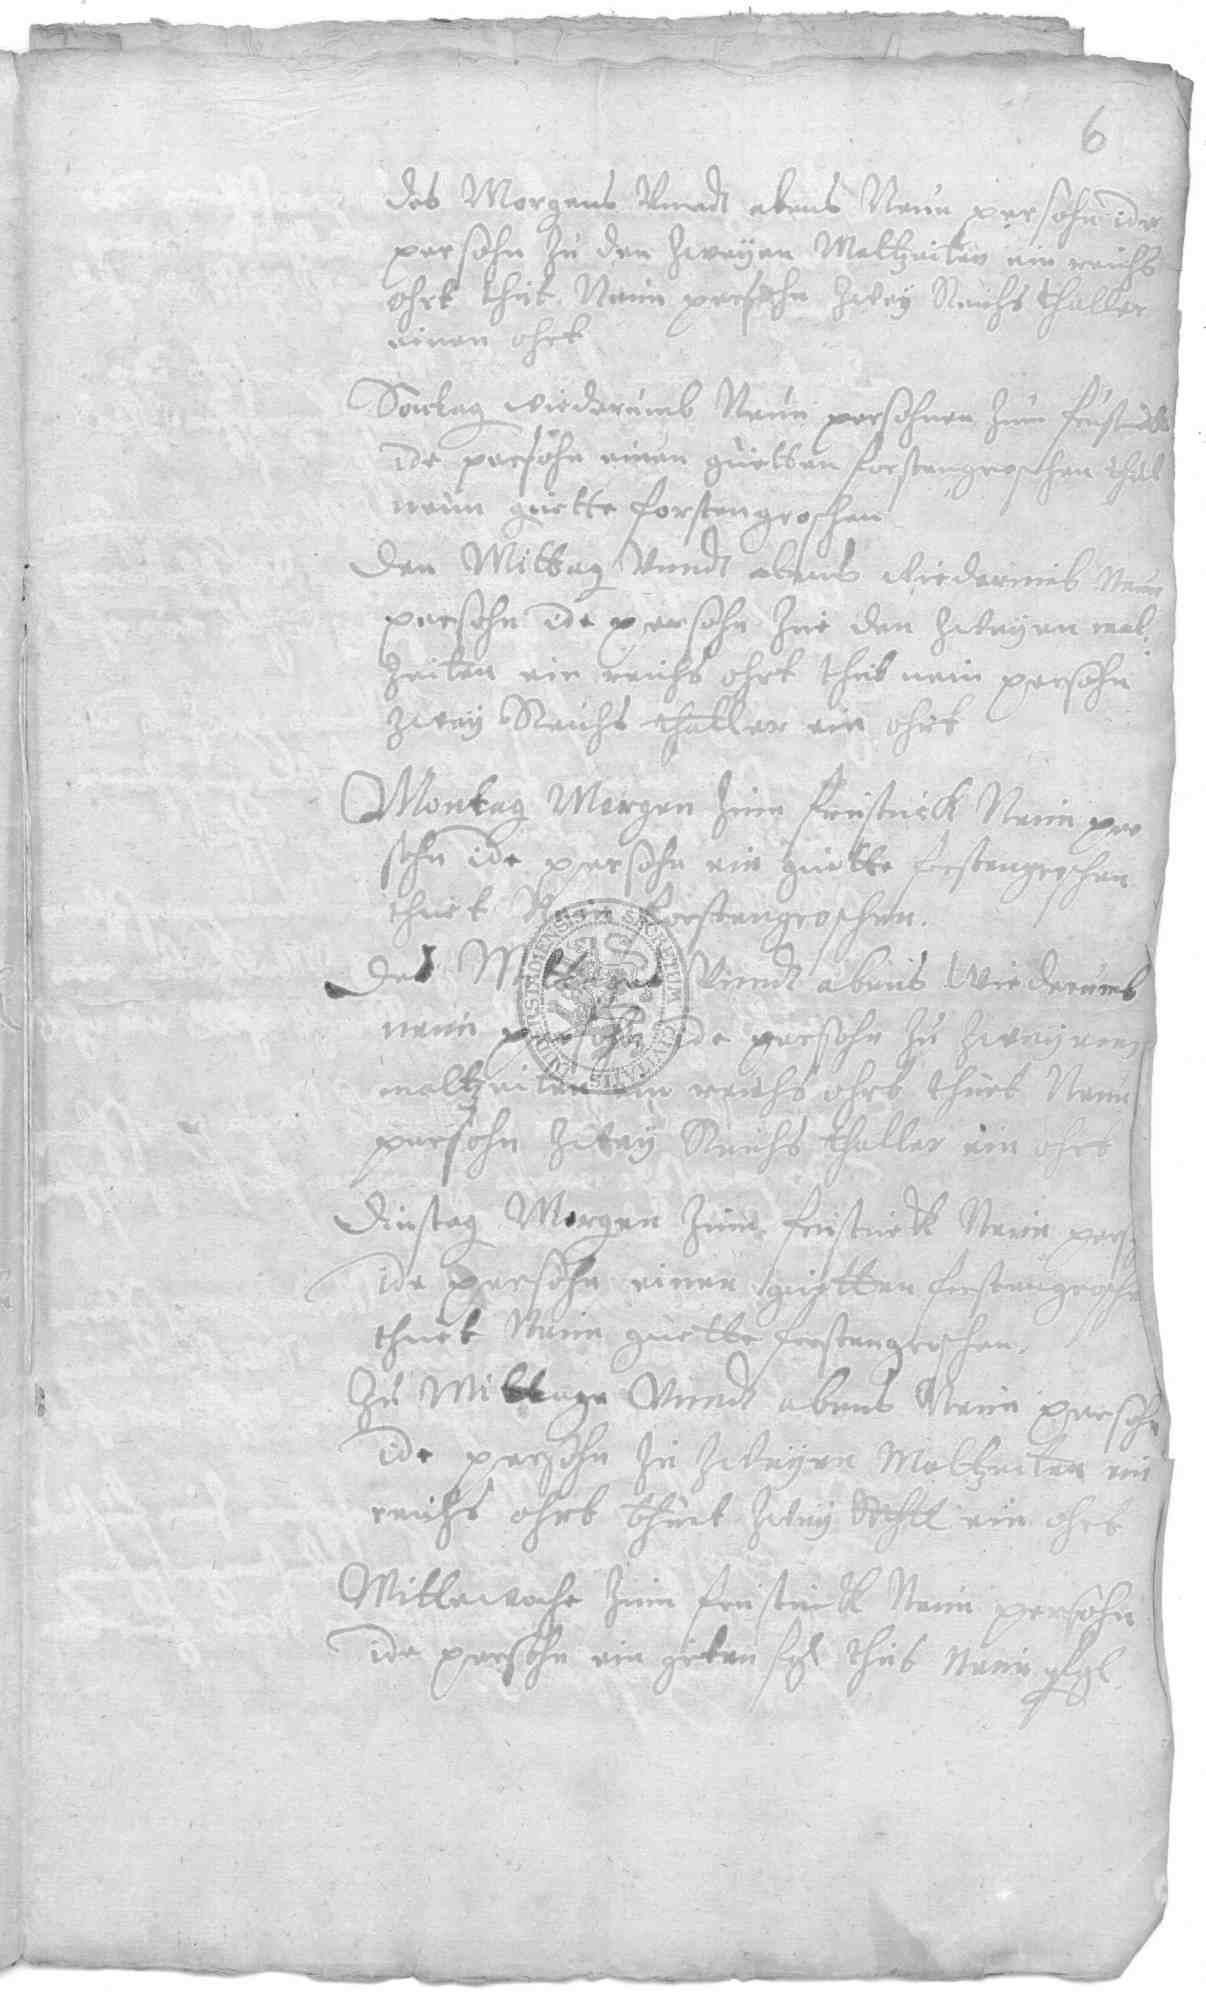 6
des Morgens Vnndt abens Neun persohn ide
persohn zu den Zweyen Maltzeiten ein reichs
ohrt thut Neun persohn Zwey Reichs thaller
einen ohrt
Sontag wiederumb Neun persohnen zum frustuck
ide persohn einen guetten forstengroschen thut
neun guette forstengroschen
Den Mittag Vnndt abens wiederumb Neun
persohn ide persohn zue den Zweyen mal
Zeiten ein reichs ohrt thut neun persohn
Zwey Reichs thaller ein ohrt
Montag Morgen zum frustuck Neun per
sohn ide persohn ein guette forstengroschen
thuet Neun forstengroschen.
Des Mittages Vnndt abens Wiederumb
neun persohn ide persohn zu Zweyen
maltzeiten ein reichs ohrt thuet Neun
persohn Zwey Reichs thaller ein ohrt
Dinstag Morgen zum frustuck Neun pers
ide persohn einen guetten forstengroschen
thuet Neun guette forstengroschen.
Zu Mittage Vnndt abens Neun persohn
ide persohn zu Zweyen Maltzeiten ein
reichs ohrt thuet Zwey Rthll ein ohrt
Mittewoche zum frustuck Neun persohn
ide persohn ein guten fgl thut Neun gfgl.